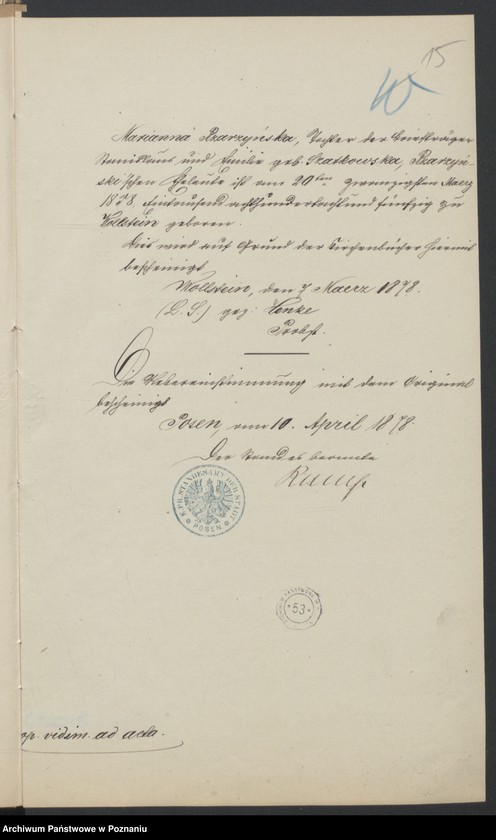 15
Marianna Skarzyńska, Tochter der Briefträger
Stanislaus und Emilie geb. Szatkowska, Skarzyń-
ski'schen Eheleute ist am 20ten zwanzigsten Maerz
1858. Eintausend achthundertachtundfünfzig zu
Wollstein geboren.
Dies wird auf Grund der Kirchenbücher hiermit
bescheinigt
Wollstein, den 7 Maerz 1878.
(L. S.) gez: Henke
Probst.
Die Uebereinstimmung mit dem Original
bescheinigt
Posen am 10. April 1878
Der Standesbeamte
K. PR. STANDESAMT DER STADT
POSEN
53
vidim. ad acta.
Archiwum Państwowe w Poznaniu